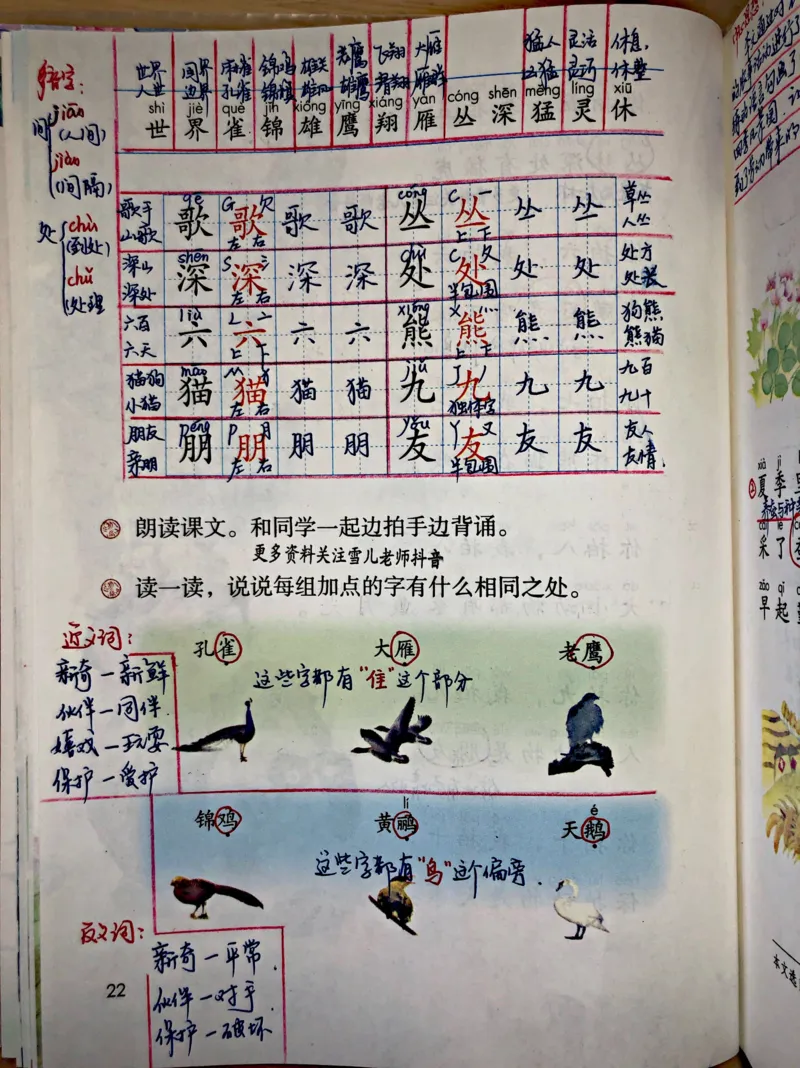 多音字：
间
jiān
(人间)
jiàn
(间隔)
处
chù
(到处)
chǔ
(处理
世界 国界 麻雀 锦鸡 雄鹰 老鹰 飞翔 大雁 猛人 灵活 休息,
人世 边界 孔雀 雁群 灵巧 休整
shì jiè què jǐn xióng yīng xiáng yàn cóng shēn měng líng xiū
世 界 雀 锦 雄 鹰 翔 雁 丛 深 猛 灵 休
歌手 山歌 gē 歌 G 欠 歌 左 右 歌 歌 cóng 丛 C 一 丛 上 下 丛 丛 草丛 人丛
深山 深处 shēn 深 S 氵 深 左 右 深 深 chù 处 C 夂 处 半包围 处 处 处方 处
六百 六天 liù 六 L 亠 六 上 下 六 六 xióng 熊 X 灬 熊 上 下 熊 熊 狗熊 熊猫
猫狗 小猫 māo 猫 M 犭 猫 左 右 猫 猫 jiǔ 九 J 丿 九 独体字 九 九 九百 九十
朋友 亲朋 péng 朋 P 月 朋 左 右 朋 朋 yǒu 友 Y 又 友 半包围 友 友 友人 友情.
朗读课文。和同学一起边拍手边背诵。
更多资料关注雪儿老师抖音
读一读，说说每组加点的字有什么相同之处。
近义词：
新奇—新鲜
伙伴—同伴
嬉戏—玩耍
保护—爱护
孔雀 大雁 老鹰
这些字都有"隹"这个部分
lí é
锦鸡 黄鹂 天鹅
这些字都有"鸟"这个偏旁.
反义词：
新奇—平常.
伙伴—对手
保护—破坏
22
xià jì
夏 季
采 了
zǎo qǐ
早 起
本文选